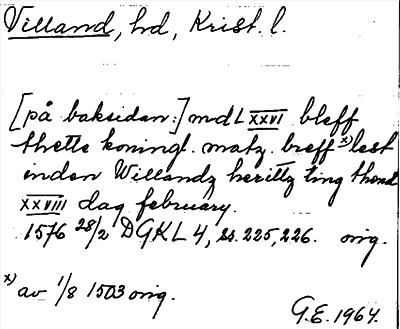 Villand, hd, Krist. l.
[på baksidan:] mdLXXVI bleff
thette koningl. matz. breff x) lest
inden Willandz herittz ting thend
XXVIII dag february.
1576 28/2 DGKL 4, ss. 225, 226. orig.
x) av 1/8 1503 orig.
G.E. 1964.